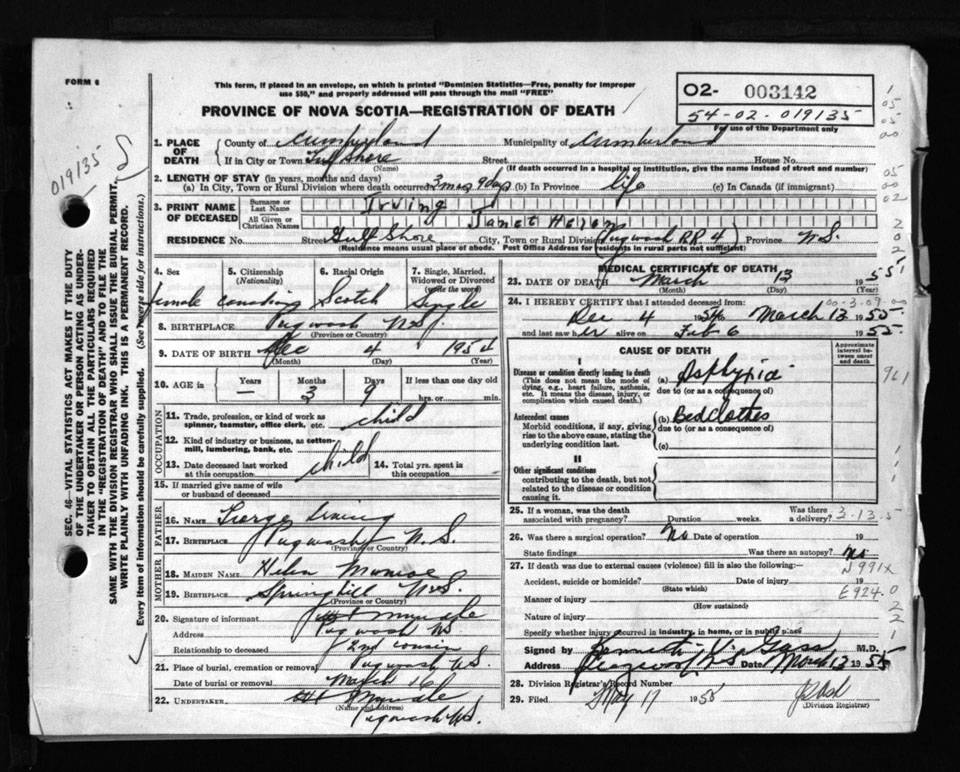 FORM 6
This form, if placed in an envelope, on which is printed "Dominion Statistics—Free, penalty for improper
use $50," and properly addressed will pass through the mail "FREE"
PROVINCE OF NOVA SCOTIA—REGISTRATION OF DEATH
O2- 003142
54-02-019135
For use of the Department only
019135
SEC. 46—VITAL STATISTICS ACT MAKES IT THE DUTY
OF THE UNDERTAKER OR PERSON ACTING AS UNDER-
TAKER TO OBTAIN ALL THE PARTICULARS REQUIRED
IN THE "REGISTRATION OF DEATH" AND TO FILE THE
SAME WITH THE DIVISION REGISTRAR WHO SHALL ISSUE THE BURIAL PERMIT.
WRITE PLAINLY WITH UNFADING INK. THIS IS A PERMANENT RECORD.
Every item of information should be carefully supplied. (See reverse side for instructions.)
1. PLACE OF DEATH
County of Cumberland Municipality of Cumberland
If in City or Town Gulf Shore Street House No.
(Name) (If death occurred in a hospital or institution, give name instead of street and number)
2. LENGTH OF STAY (in years, months and days)
(a) In City, Town or Rural Division where death occurred 3 mos 9 days (b) In Province life (c) In Canada (if immigrant)
3. PRINT NAME OF DECEASED
Surname or Last Name Irving
All Given or Christian Names Janet Helen
RESIDENCE No. Street Gulf Shore City, Town or Rural Division (Pugwash RR 4) Province N.S.
(Residence means usual place of abode. Post Office Address for residents in rural parts not sufficient)
4. Sex
female
5. Citizenship
(Nationality)
Canadian
6. Racial Origin
Scotch
7. Single, Married,
Widowed or Divorced
(write the word)
Single
8. BIRTHPLACE Pugwash N.S.
(Province or Country)
9. DATE OF BIRTH Dec 4 1954
(Month) (Day) (Year)
10. AGE in Years — Months 3 Days 9 If less than one day old
hrs. or min.
OCCUPATION
11. Trade, profession, or kind of work as
spinner, teamster, office clerk, etc. child
12. Kind of industry or business, as cotton-
mill, lumbering, bank, etc.
child
13. Date deceased last worked
at this occupation
14. Total yrs. spent in
this occupation
15. If married give name of wife
or husband of deceased
FATHER
16. NAME George Irving
17. BIRTHPLACE Pugwash N.S.
(Province or Country)
MOTHER
18. MAIDEN NAME Helen Munroe
19. BIRTHPLACE Springhill N.S.
(Province or Country)
20. Signature of informant
Address Pugwash N.S.
Relationship to deceased 2nd cousin
21. Place of burial, cremation or removal Pugwash N.S.
Date of burial or removal March 16
22. UNDERTAKER
(Name and address)
Pugwash N.S.
MEDICAL CERTIFICATE OF DEATH
23. DATE OF DEATH March 13 1955
(Month) (Day) (Year)
24. I HEREBY CERTIFY that I attended deceased from
Dec 4 1954 March 13 1955
and last saw her alive on Feb 6 1955
00-3-09-00
CAUSE OF DEATH
Approximate
interval be-
tween onset
and death
I
Disease or condition directly leading to death
(This does not mean the mode of
dying, e.g., heart failure, asthenia,
etc. It means the disease, injury, or
complication which caused death.)
(a) Asphyxia
due to (or as a consequence of)
Antecedent causes
Morbid conditions, if any, giving
rise to the above cause, stating the
underlying condition last.
(b) Bedclothes
due to (or as a consequence of)
(c)
II
Other significant conditions
contributing to the death, but not
related to the disease or condition
causing it.
25. If a woman, was the death
associated with pregnancy? Duration weeks. Was there
a delivery? 3-13-5
26. Was there a surgical operation? No Date of operation
State findings Was there an autopsy? No
27. If death was due to external causes (violence) fill in also the following:—
N991X
Accident, suicide or homicide? Date of injury 19
(State which)
E924.0
Manner of injury
(How sustained)
Nature of injury
Specify whether injury occurred in industry, in home, or in public place
Signed by Kenneth V. Gass M.D.
Address Pugwash NS Date March 13 1955
28. Division Registrar's Record Number
29. Filed May 17 1955
(Division Registrar)